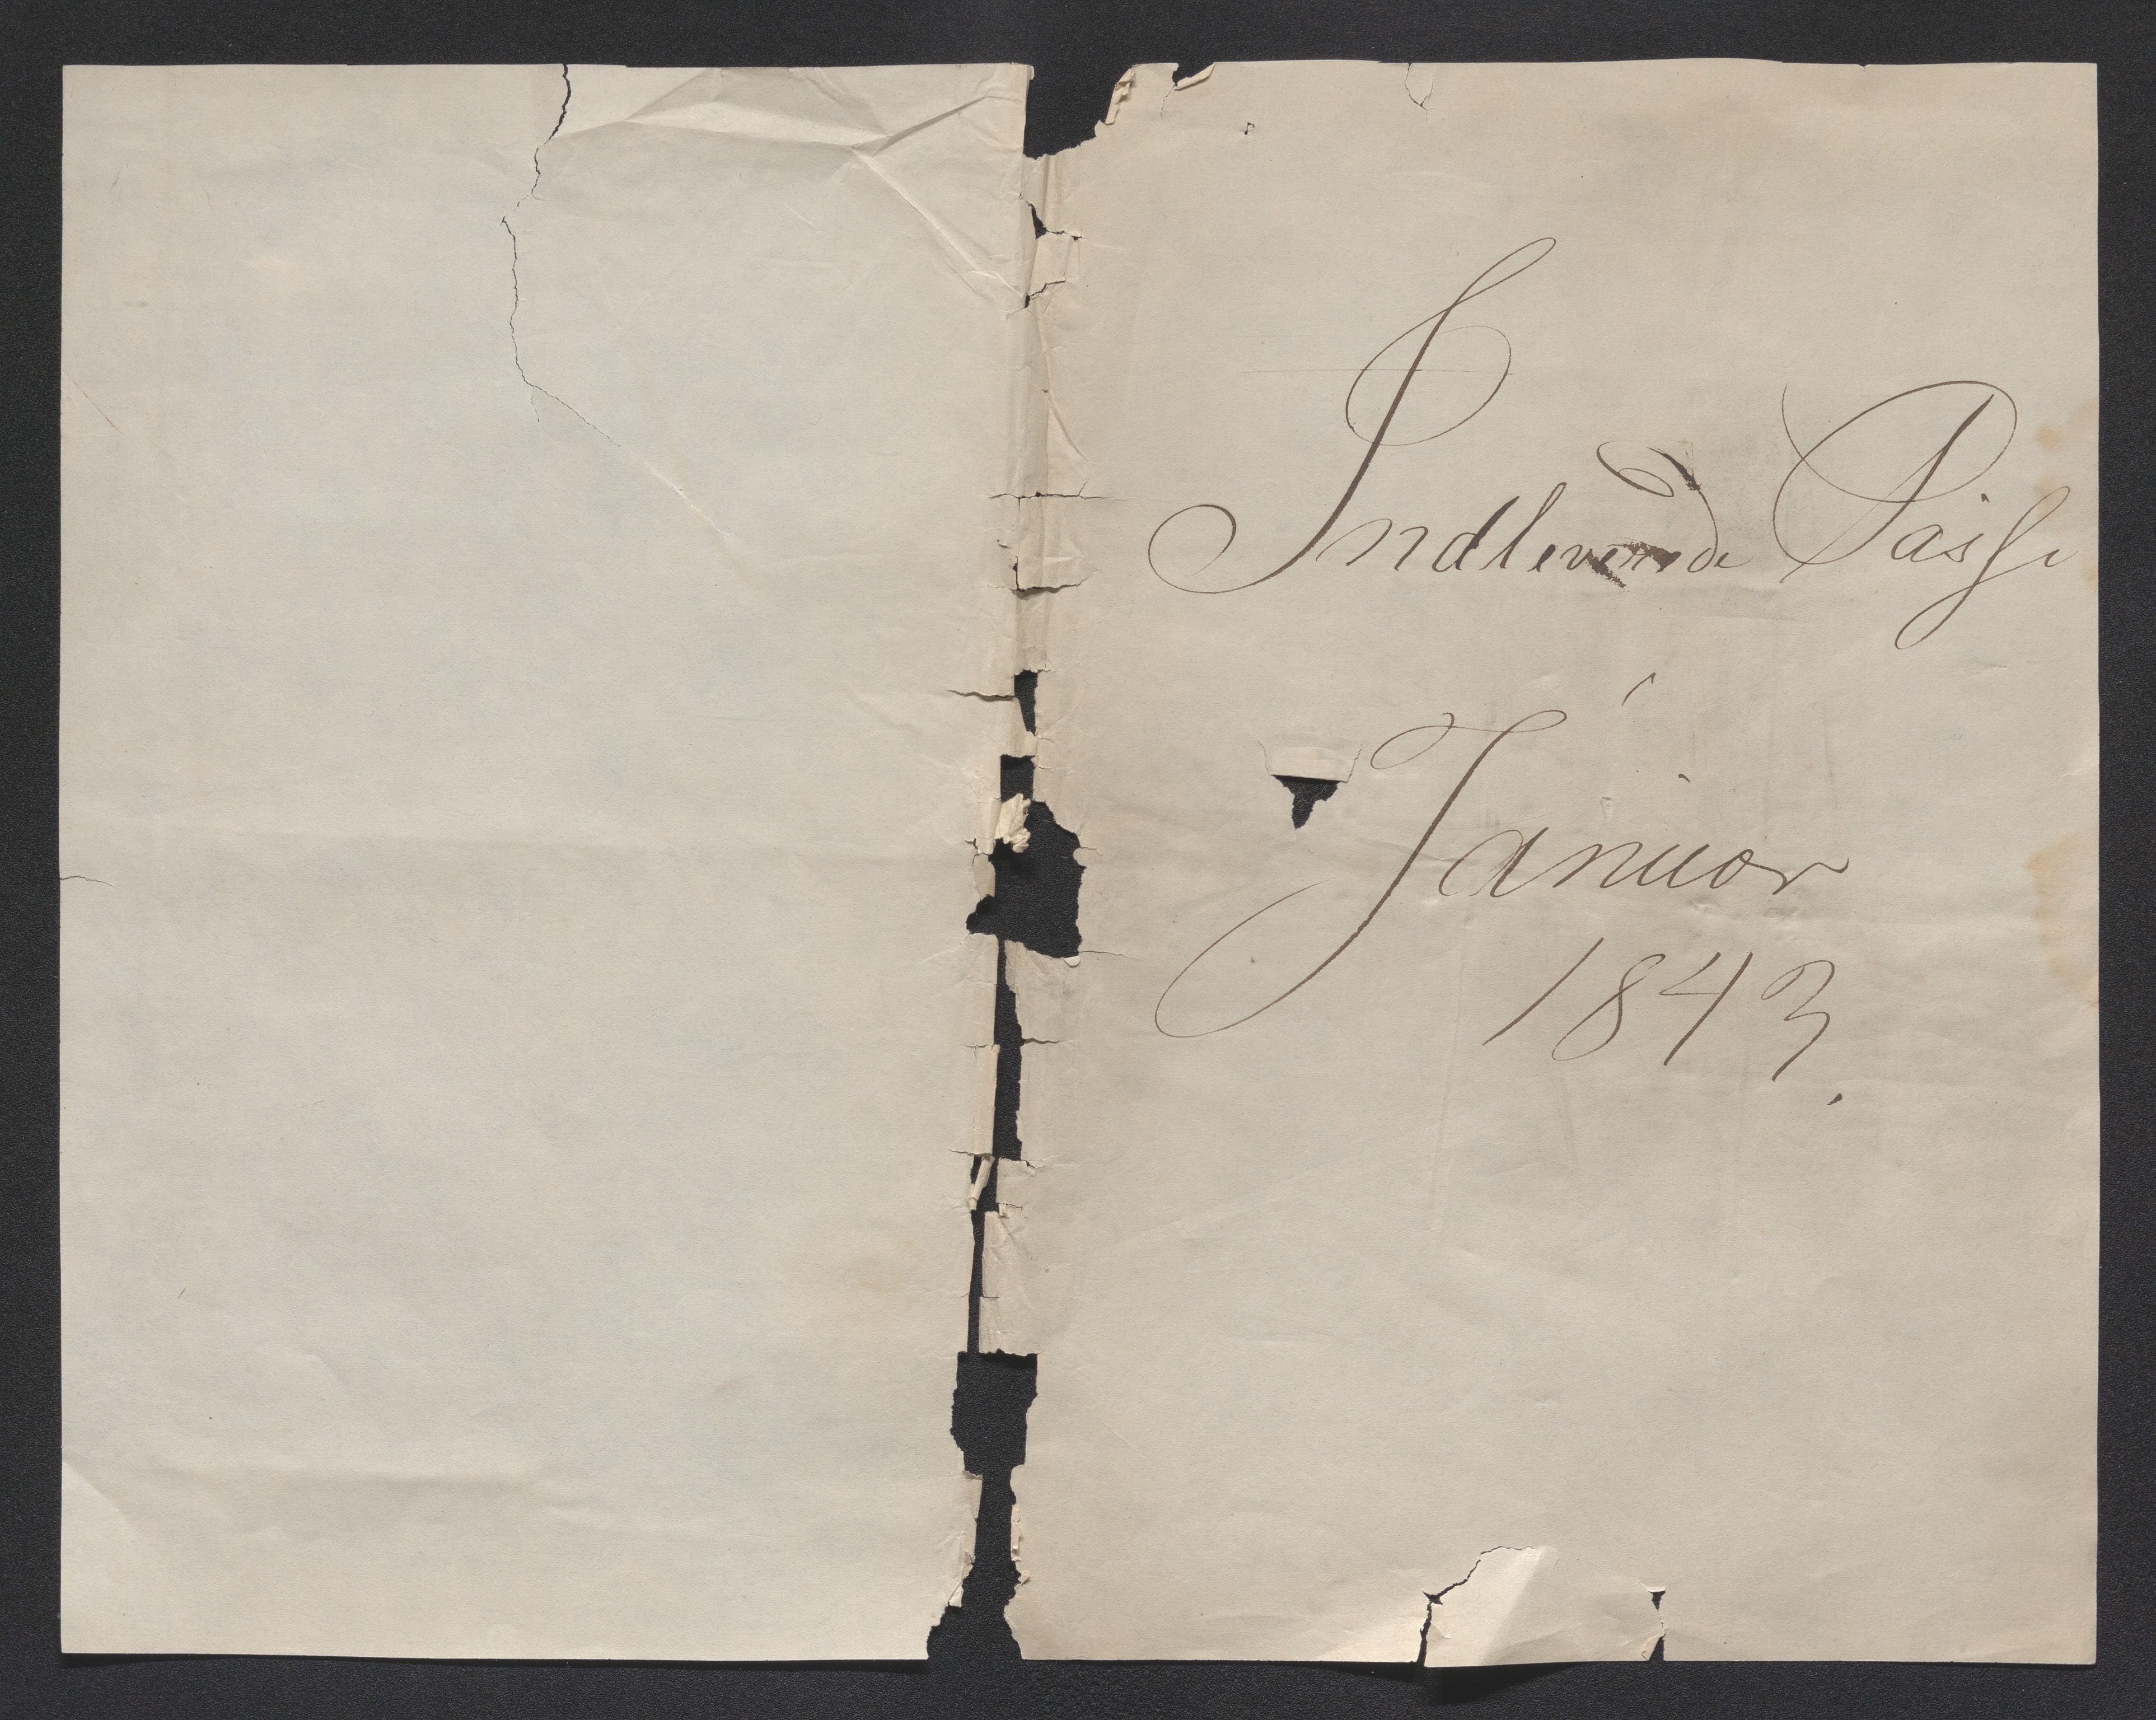 Indleverede Passe
i
Januar
1843.